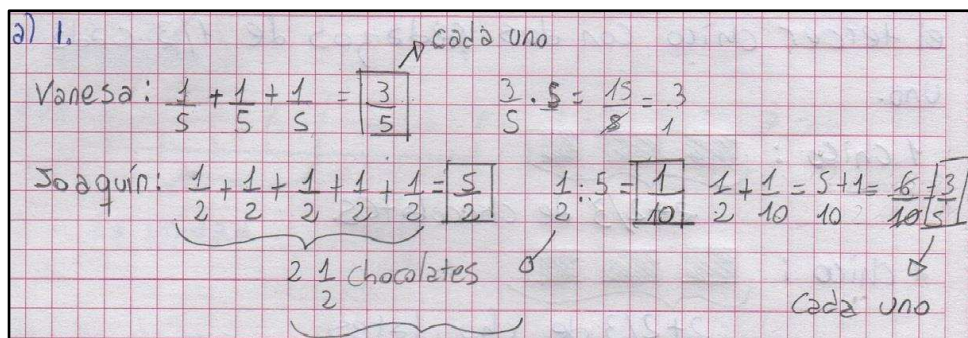 a) 1.
cada uno
Vanesa: 1/5 + 1/5 + 1/5 = 3/5    3/5 · 5 = 15/5 = 3/1
Joaquín: 1/2 + 1/2 + 1/2 + 1/2 + 1/2 = 5/2    1/2 : 5 = 1/10    1/2 + 1/10 = 5+1/10 = 6/10 = 3/5
2 1/2 chocolates
cada uno